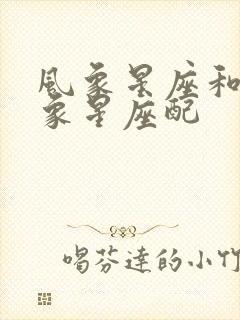 風象星座和
象星座配
喝芬達的小竹